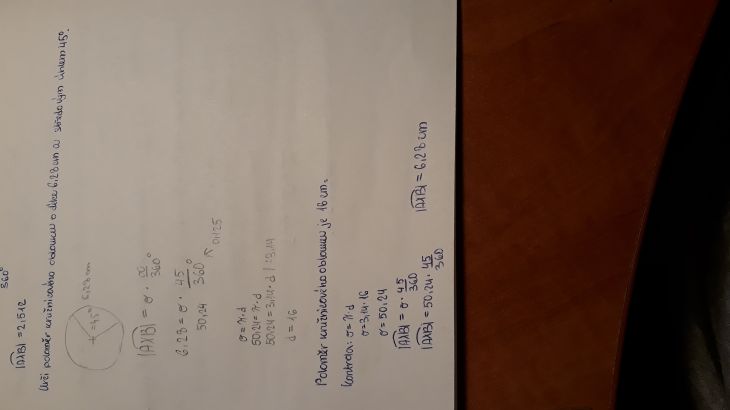 360°
|AXB| = 2,512
Urči poloměr kružnicového oblouku o délce 6,28 cm a středovým úhlem 45°.
α=45° 6,28 cm
|AXB| = σ · α/360°
6,28 = σ · 45/360°
50,24 0,125
σ = π·d
50,24 = π·d
50,24 = 3,14·d /:3,14
d = 16
Poloměr kružnicového oblouku je 16 cm.
Kontrola: σ = π·d
σ = 3,14·16
σ = 50,24
|AXB| = σ · 45/360
|AXB| = 50,24 · 45/360 |AXB| = 6,28 cm